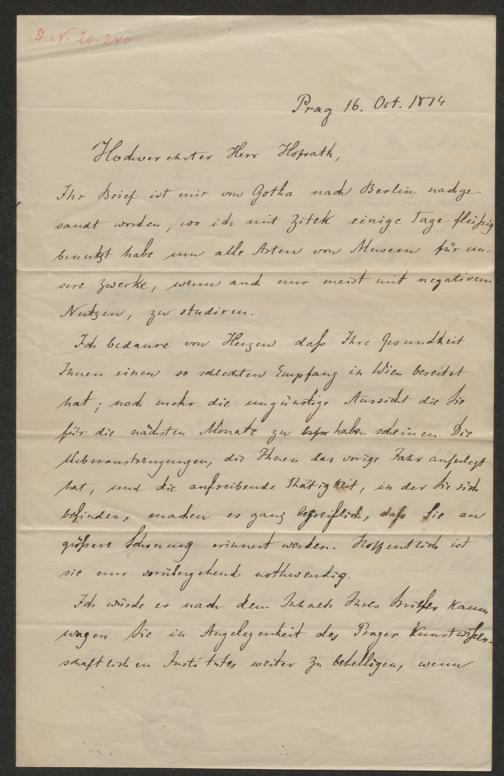 J. N. 20.240.
Prag 16. Oct. 1874
Hochverehrter Herr Hofrath,
Ihr Brief ist mir von Gotha nach Berlin nachge-
sandt worden, wo ich mit Zitek einige Tage fleißig
benutzt habe um alle Arten von Museen für un-
sere Zwecke, wenn auch nur meist mit negativem
Nutzen, zu studiren.
Ich bedaure von Herzen daß Ihre Gesundheit
Ihnen einen so schlechten Empfang in Wien bereitet
hat; noch mehr die ungünstige Aussicht die Sie
für die nächsten Monate zu haben scheinen. Die
Ueberanstrengungen, die Ihnen das vorige Jahr auferlegt
hat, und die aufreibende Thätigkeit, in der Sie sich
befinden, machen es ganz begreiflich, daß Sie an
größere Schonung erinnert werden. Hoffentlich ist
sie nur vorübergehend nothwendig.
Ich würde es nach dem Inhalt Ihres Briefes kaum
wagen Sie in Angelegenheit des Prager Kunstwissen-
schaftlichen Institutes weiter zu behelligen, wenn